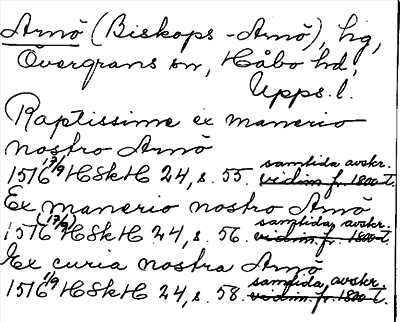 Arnö (Biskops-Arnö), hg,
Övergrans sn, Håbo hd,
Upps. l.
Raptissime ex manerio
nostro Arnö
1516 17/9 HSkH 24, s. 55. samtida avskr. vidim. fr. 1800 t.
Ex manerio nostro Arnö
1516 (17/9) HSkH 24, s. 56. samtida avskr. vidim. fr. 1800 t.
Ex curia nostra Arnö
1516 1/9 HSkH 24, s. 58. samtida avskr. vidim. fr. 1800 t.